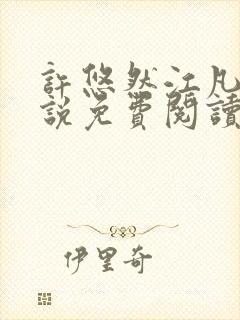 許悠然江凡
說免費閱讀
伊里奇